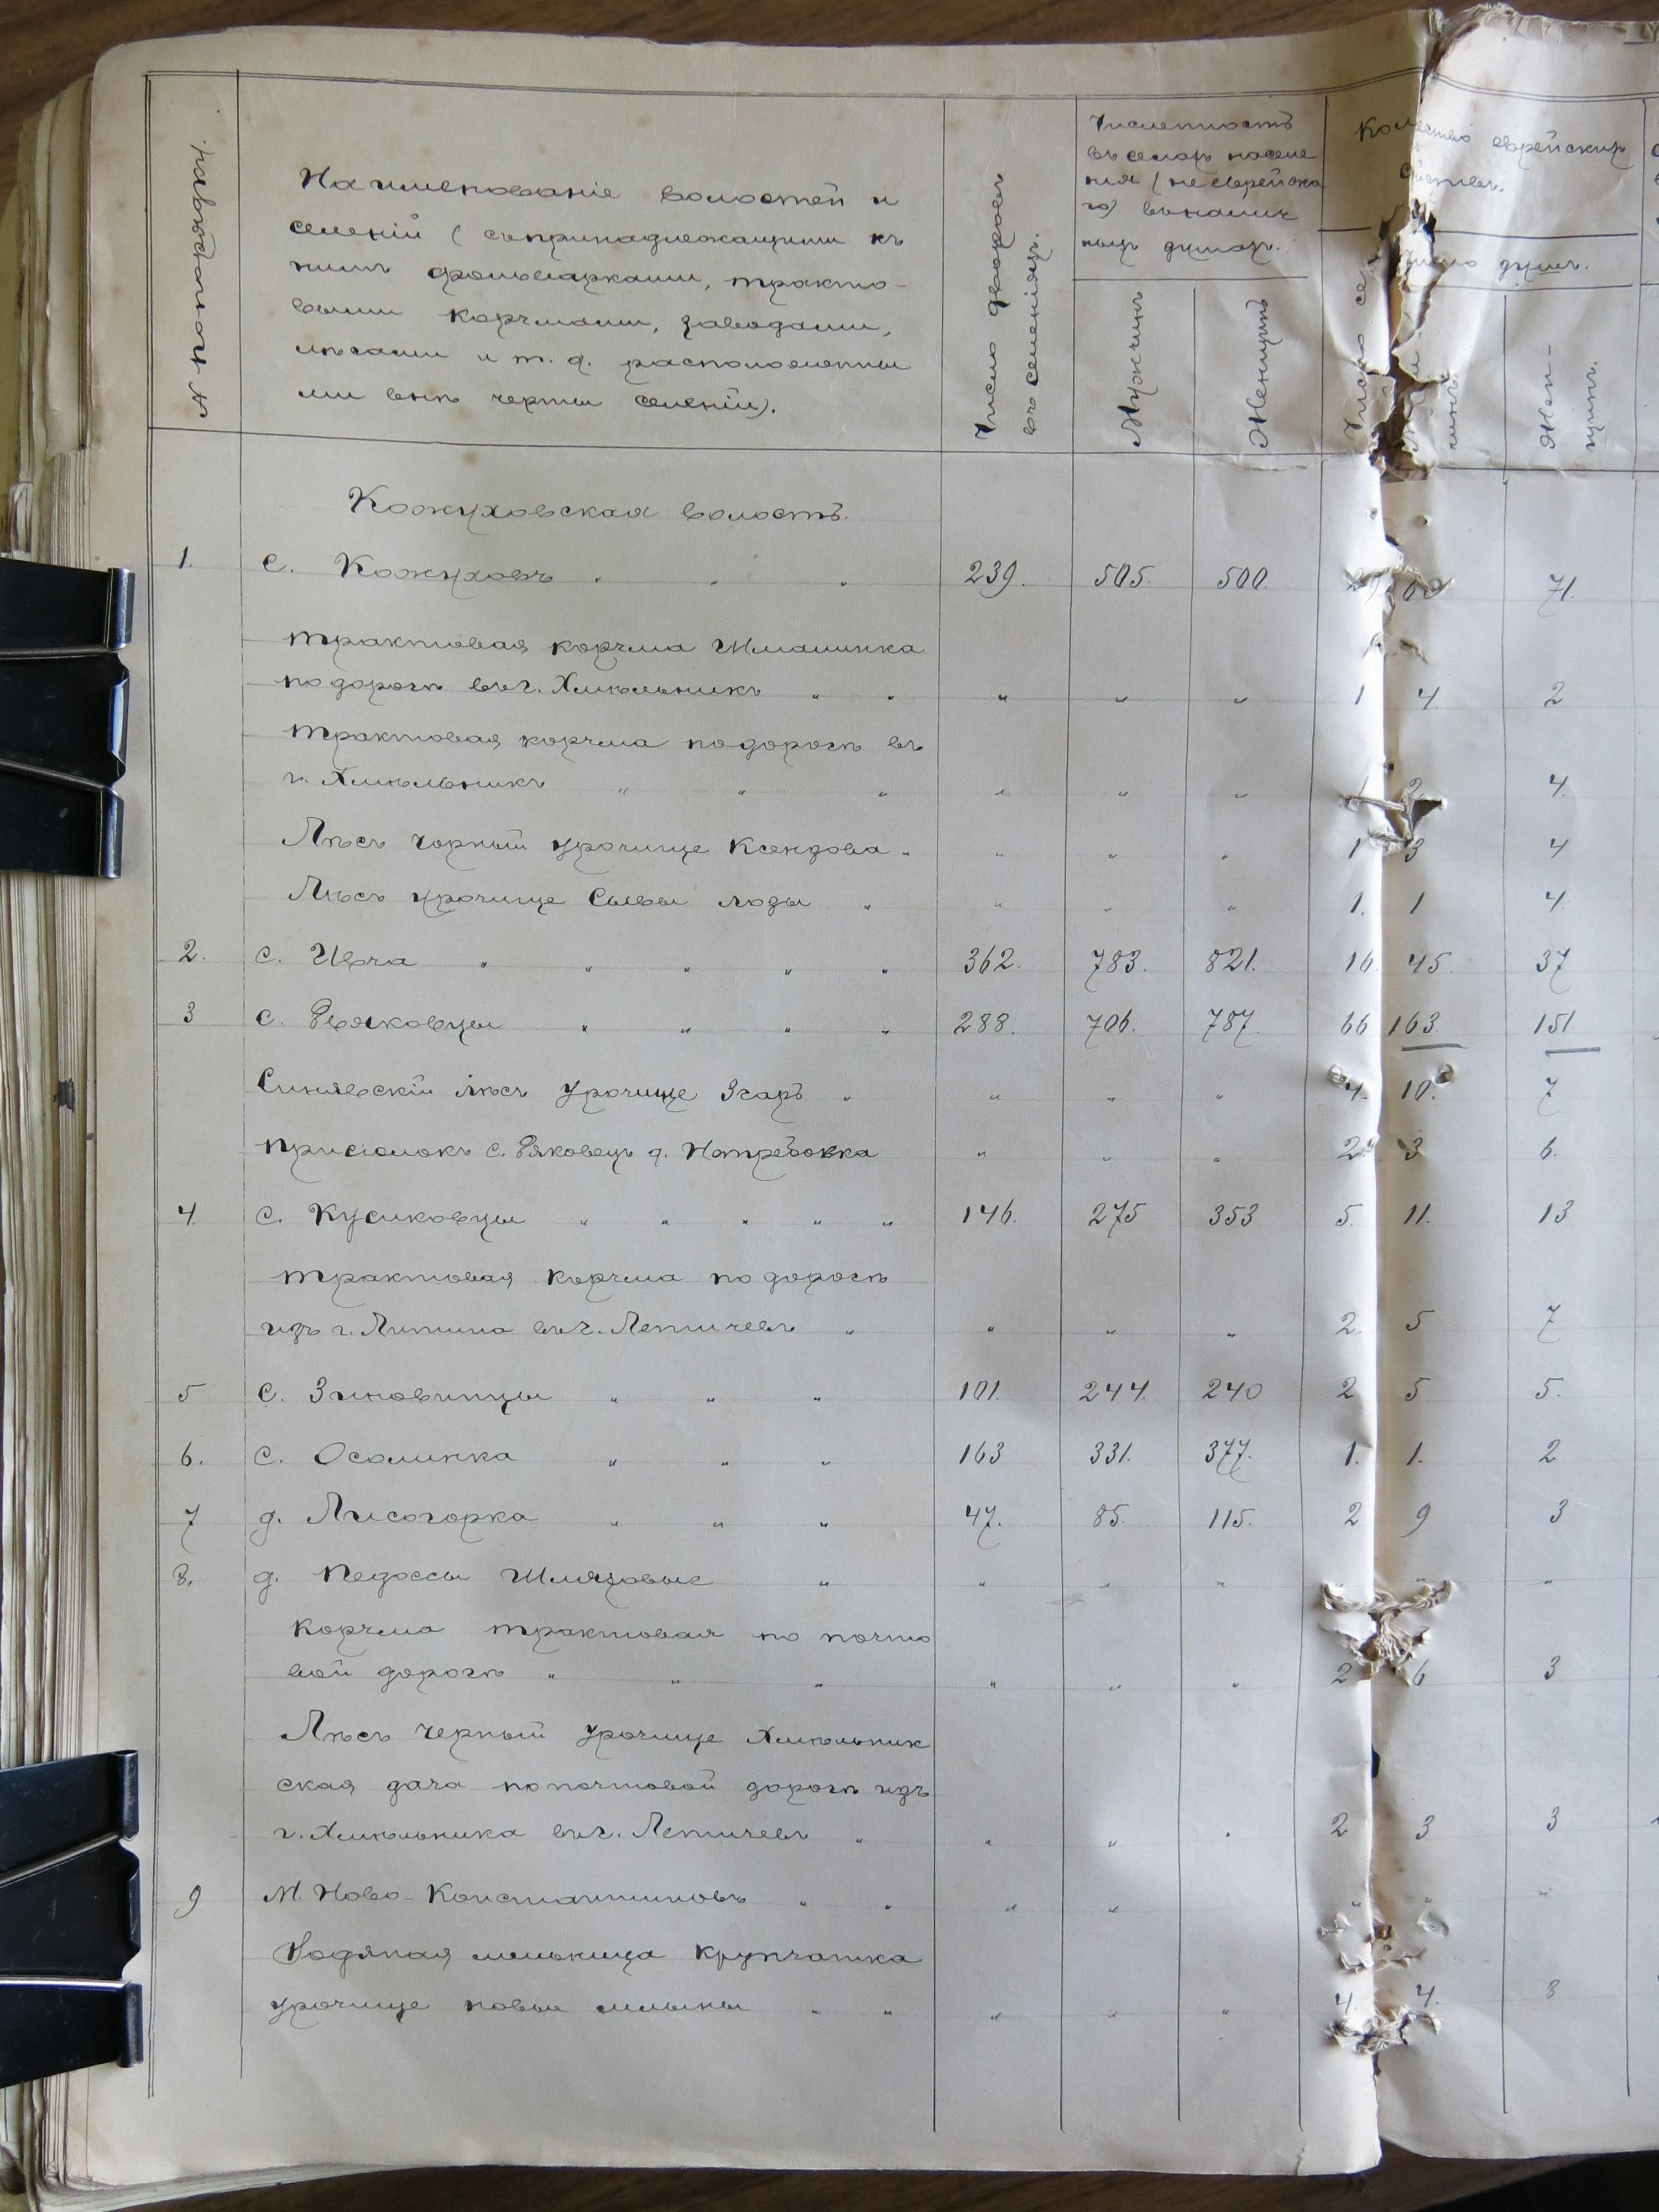 № по порядку.
Наименованіе волостей и
селеній (съ принадлежащими къ
нимъ фольварками, тракто-
выми корчмами, заводами,
лѣсами и т. д. расположенны
ми внѣ черты селеній).
Число дворовъ
въ селеніяхъ.
Численность
въ селахъ населе
нія (не еврейска
го) въ налич
ныхъ душахъ.
Мужчинъ
Женщинъ
еврейскихъ
Число
душъ.
Жен-
щинъ.
Кожуховская волость.
1. с. Кожуховъ " " " 239. 505. 500. 71.
трактовая корчма
по дорогѣ въ г. Хмѣльникъ " " " " " 1 4 2
трактовая корчма по дорогѣ въ
г. Хмѣльникъ " " " " " " 1 2 4.
Лѣсъ чорный урочище Ксендзова " " " " 1 3 4
Лѣсъ урочище " " " " 1. 1 4.
2. с. Ивча " " " " " 362. 783. 821. 16. 45. 37
3 с. Дяковцы " " " " 288. 706. 787. 66 163 151.
Синявскій лѣсъ урочище Згаръ " " " " 4. 10. 7
приселокъ с. Дяковецъ д. Нетребовка " " " 3 6.
4. с. Кусиковцы " " " " " 146. 275 353 5. 11. 13
трактовая корчма по дорогѣ
изъ г. Литина въ г. Летичевъ " " " " 2. 5 7
5 с. Зиновинцы " " " 101. 244. 240 2 5 5.
6. с. Осолинка " " " 163 331. 377. 1. 1. 2
7 д. Лисогорка " " " 47. 85. 115. 2 9 3
8. д. " " " " " "
корчма трактовая по почто
вой дорогѣ " " " " " " 2 6 3
Лѣсъ черный урочище Хмѣльник
ская дача по почтовой дорогѣ изъ
г. Хмѣльника въ г. Летичевъ " " " " 2 3 3
9 М. Ново-Константиновъ " " " " " " "
Водяная мельница крупчатка
урочище новые млыны " " " " " 4. 4. 8